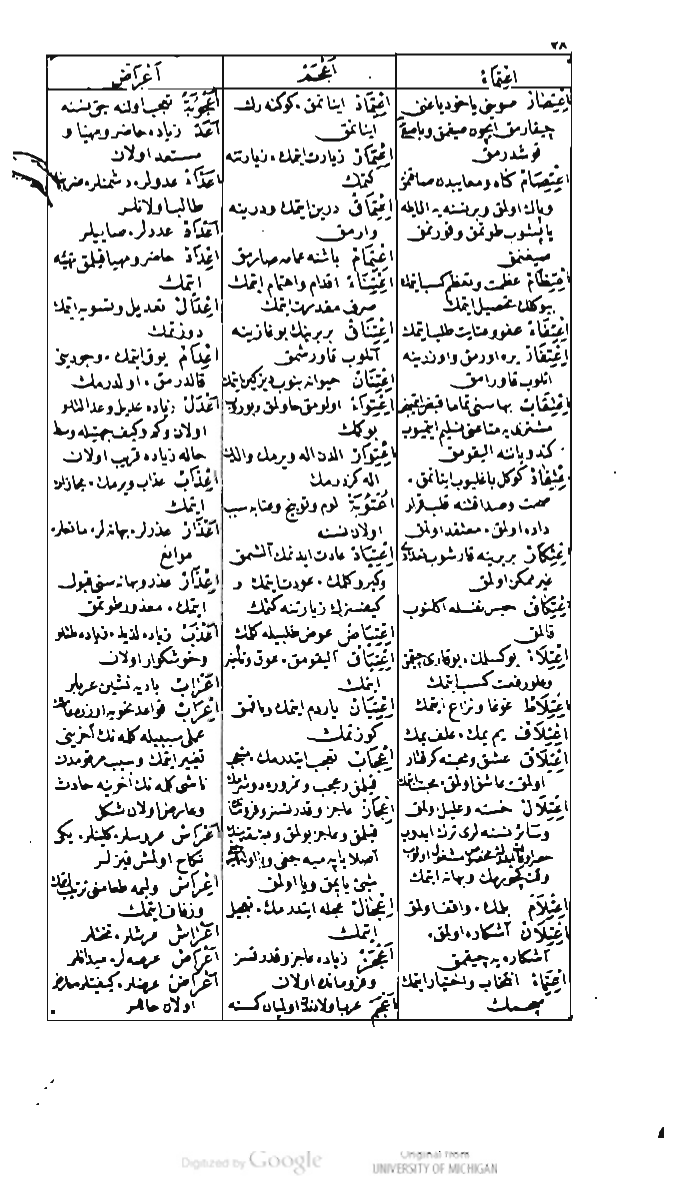 ٣٨
اِعْتِمَاءْ
اَعْجَمْ
اَعْرَاضْ
اِعْتِصَارْ صويى ياخود ياغنى
چيقارمق ايچون صيقمق وباصه
قوشدرمق
اِعْتِصَامْ كناه ومعايبدن صاقنمق
وپاك اولق وبرنسنه يه الايله
ياپيشوب طوتمق وقورتمق
صيغنمق
اِعْتِظَامْ عظمت وتعظم كسب ايتمك
بيوكلك تحصيل ايتمك
اِعْتِفَاءْ عفو وعنايت طلب ايتمك
اِعْتِفَارْ يره اورمق و اوزرينه
اتلوب قاورامق
اِعْتِقَابْ بهاسنى تماما قبض ايتميه
مشترى يه متاعى تسليم ايتميوب
كندو ياننه اليقومق
اِعْتِقَادْ كوكل باغليوب اينانمق
صحت وصداقتنه قلب قرار
داده اولق . معتقد اولق
اِعْتِكَارْ بربرينه قارشوب تعدادى
غير ممكن اولق
اِعْتِكَافْ حبس نفسله اكلنوب
قالمق
اِعْتِلَاءْ يوكسلمك . يوقارى چيقمق
وعلو رفعت كسب ايتمك
اِعْتِلَاطْ غوغا ونزاع ايتمك
اِعْتِلَافْ يم يمك . علف يمك
اِعْتِلَاقْ عشق ومحبته كرفتار
اولق . عاشق اولق . محبت ايتمك
اِعْتِلَالْ خسته وعليل اولق
وسائر نسنه لرى ترك ايدوب
مشغول اولوب
وقت كچورمك وبهانه ايتمك
اِعْتِلَامْ بلمك . واقف اولق
اِعْتِلَانْ آشكاره اولق .
آشكاره يه چيقمق
اِعْتِمَاءْ انتخاب واختيار ايتمك
سچمك
اِعْتِمَادْ اينانمق . كوكنه رك
اينانمق
اِعْتِمَارْ زيارت ايتمك . زيارتنه
كتمك
اِعْتِمَاقْ درين ايتمك ودرينه
وارمق
اِعْتِمَامْ باشنه عمامه صارمق
اِعْتِنَاءْ اقدام واهتمام ايتمك
صرف مقدرت ايتمك
اِعْتِنَاقْ بربرينك بوغازينه
آتلوب قاورشمق
اِعْتِنَانْ حيوانه بنوب ديزكين ايتمك
اِعْتِوَاءْ اولومق حاولق وبوروب
بوكمك
اِعْتِوَارْ الدن اله ويرمك والدن
اله كزدرمك
اُعْتُوبَةْ لوم وتوبيخ وعتابه سبب
اولان نسنه
اِعْتِيَادْ عادت ايدنمك آلشمق
وكيرو كلمك . عودت ايتمك و
كيفسزك زيارتنه كتمك
اِعْتِيَاضْ عوض طلبيله كلمك
اِعْتِيَاقْ اليقومق . عوق وتأخير
ايتمك
اِعْتِيَانْ ياردم ايتمك وباقمق
كوزتمك
اِعْجَابْ تعجب ايتدرمك . متعجب
قيلمق ومعجب ومغروره دوشرمك
اِعْجَازْ عاجز وقدرتسز وفرومانده
قيلمق وعاجز بولمق
اصلا ياپه ميه جغى
شئ ياپمق ويا اولق
اِعْجَالْ عجله ايتدرمك . تعجيل
ايتمك
اَعْجَزْ زياده عاجز وقدرتسز
وفرومانده اولان
اَعْجَمْ عرب اولانده اولميان كسنه
اُعْجُوبَةْ تعجب اولنه جق نسنه
اَعَدّ زياده حاضر ومهيا و
مستعد اولان
اَعْدَاءْ عدولر . دشمنلر . ضرره
طالب اولانلر
اَعْدَادْ عددلر . صاييلر
اِعْدَادْ حاضر ومهيا قيلمق تهيئه
ايتمك
اِعْدَالْ تعديل وتسويه ايتمك
دوزتمك
اِعْدَامْ يوق ايتمك . وجودينى
قالدرمق . اولدرمك
اَعْدَلْ زياده عديل وعدالتلو
اولان وكم وكيف جهتيله وسط
حاله زياده قريب اولان
اِعْذَابْ عذاب ويرمك . مجازات
ايتمك
اَعْذَارْ عذرلر . بهانه لر . مانعلر .
موانع
اِعْذَارْ عذر وبهانه سنى قبول
ايتمك . معذور طوتمق
اَعْذَبْ زياده لذيذ . زياده طتلو
وخوشكوار اولان
اَعْرَابْ باديه نشين عربلر
اِعْرَابْ قواعد نحويه اوزره
عملى سببيله كلمه نك آخرينى
تغيير ايتمك وسبب مرقومدن
ناشى كلمه نك آخرينه حادث
وعارض اولان شكل
اَعْرَاسْ عروسلر . كلينلر . يكى
نكاح اولمش قيزلر
اِعْرَاسْ وليمه طعامنى ترتيب ايتمك
وزفاف ايتمك
اَعْرَاشْ عرشلر . تختلر
اَعْرَاصْ عرصه لر . ميدانلر
اَعْرَاضْ عرضلر . كيفيتلر . عارض
اولان حاللر
Digitized by Google
Original from
UNIVERSITY OF MICHIGAN